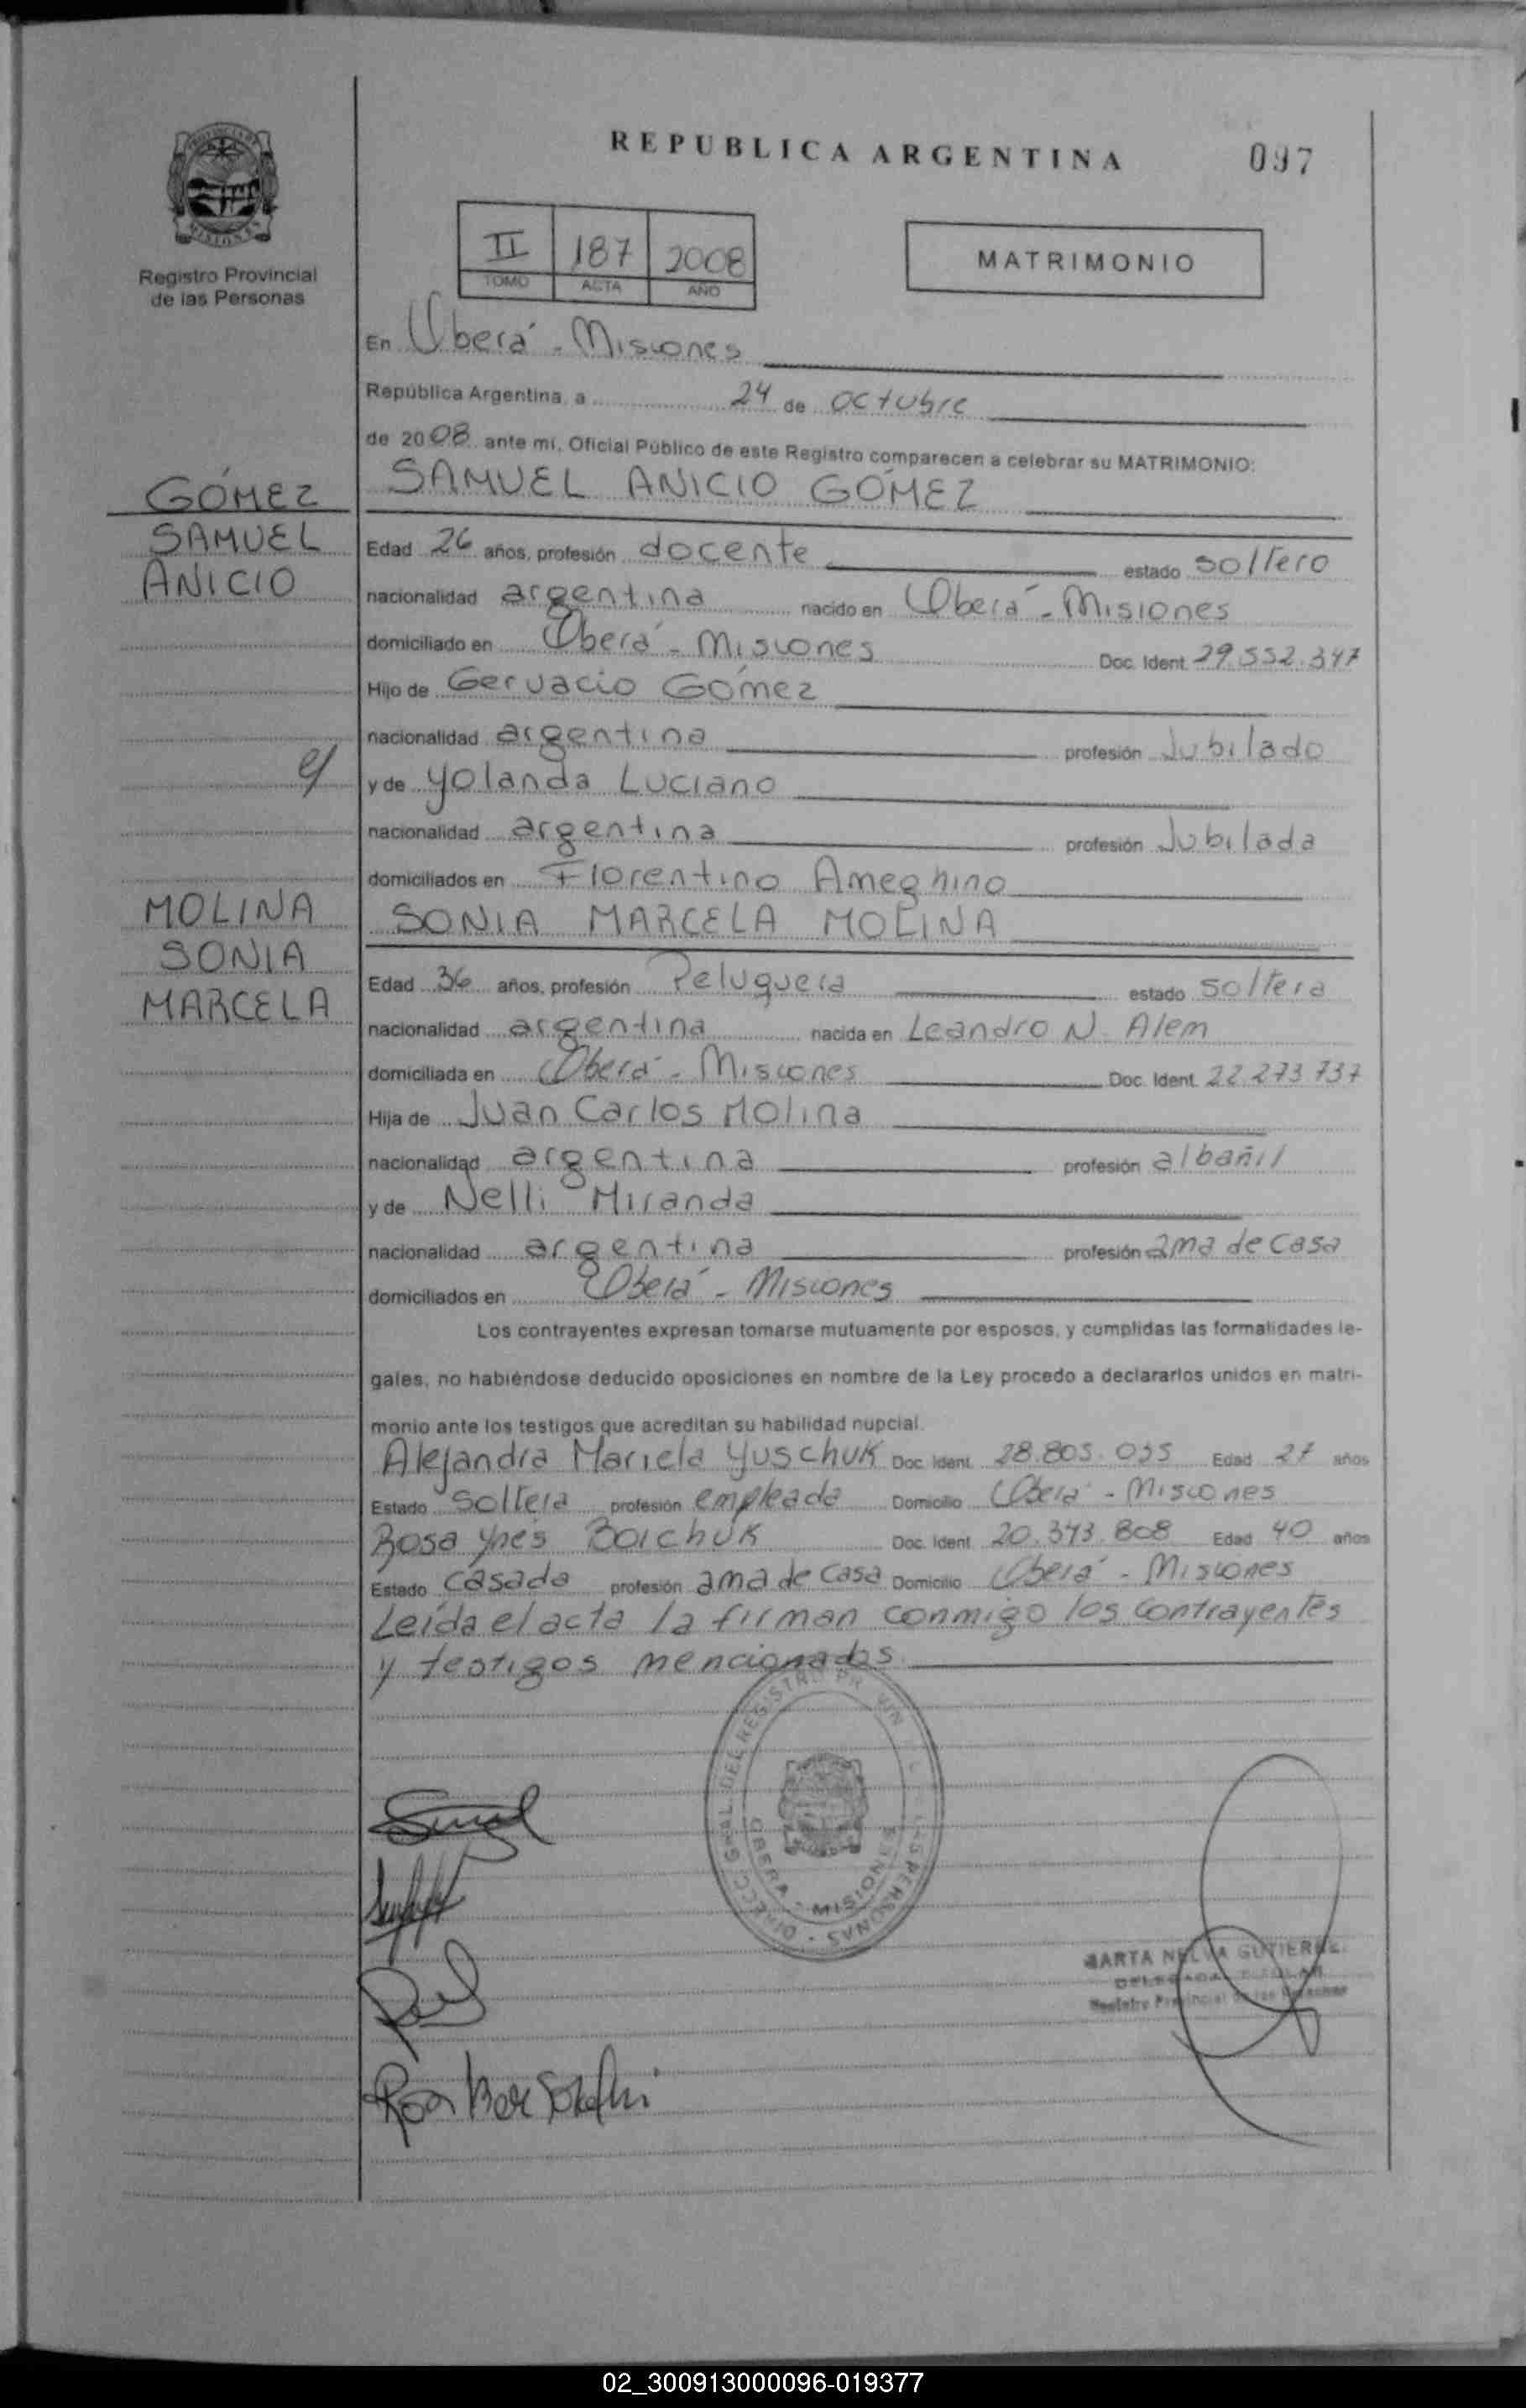 REPUBLICA ARGENTINA
097
Registro Provincial
de las Personas
II 187 2008
TOMO ACTA AÑO
MATRIMONIO
En Oberá - Misiones
República Argentina, a 24 de octubre
de 2008 ante mí, Oficial Público de este Registro comparecen a celebrar su MATRIMONIO:
GÓMEZ
SAMUEL
ANICIO
y
MOLINA
SONIA
MARCELA
SAMUEL ANICIO GÓMEZ
Edad 26 años, profesión docente estado soltero
nacionalidad argentina nacido en Oberá - Misiones
domiciliado en Oberá - Misiones Doc. Ident. 29.552.347
Hijo de Gervacio Gómez
nacionalidad argentina profesión Jubilado
y de Yolanda Luciano
nacionalidad argentina profesión Jubilada
domiciliados en Florentino Ameghino
SONIA MARCELA MOLINA
Edad 36 años, profesión Peluquera estado soltera
nacionalidad argentina nacida en Leandro N. Alem
domiciliada en Oberá - Misiones Doc. Ident. 22.273.737
Hija de Juan Carlos Molina
nacionalidad argentina profesión albañil
y de Nelli Miranda
nacionalidad argentina profesión ama de casa
domiciliados en Oberá - Misiones
Los contrayentes expresan tomarse mutuamente por esposos, y cumplidas las formalidades le-
gales, no habiéndose deducido oposiciones en nombre de la Ley procedo a declararlos unidos en matri-
monio ante los testigos que acreditan su habilidad nupcial.
Alejandra Mariela Yuschuk Doc. Ident. 28.805.035 Edad 27 años
Estado soltera profesión empleada Domicilio Oberá - Misiones
Rosa Ynés Boichuk Doc. Ident. 20.343.808 Edad 40 años
Estado casada profesión ama de casa Domicilio Oberá - Misiones
Leída el acta la firman conmigo los contrayentes
y testigos mencionados.
OBERA - MISIONES
MARTA NELVA GUTIERREZ
Registro Provincial de las Personas
02_300913000096-019377